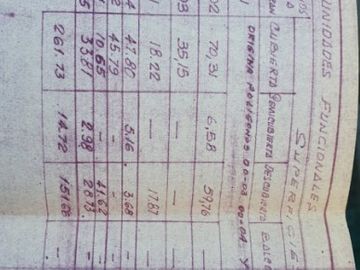 UNIDADES FUNCIONALES
SUPERFICIE
CUBIERTA SEMICUBIERTA DESCUBIERTA BALC
ORIGINA POLIGONOS 00-03 00-04 Y
02 70,31 6,58 59,76 —
03 35,15 — — —
18.22 — 17.87 —
47.80 5.16 3.68 —
45.79 — — —
10.65 — 41.62 —
33.81 2.98 28.73 —
261.73 14.72 151.66 —